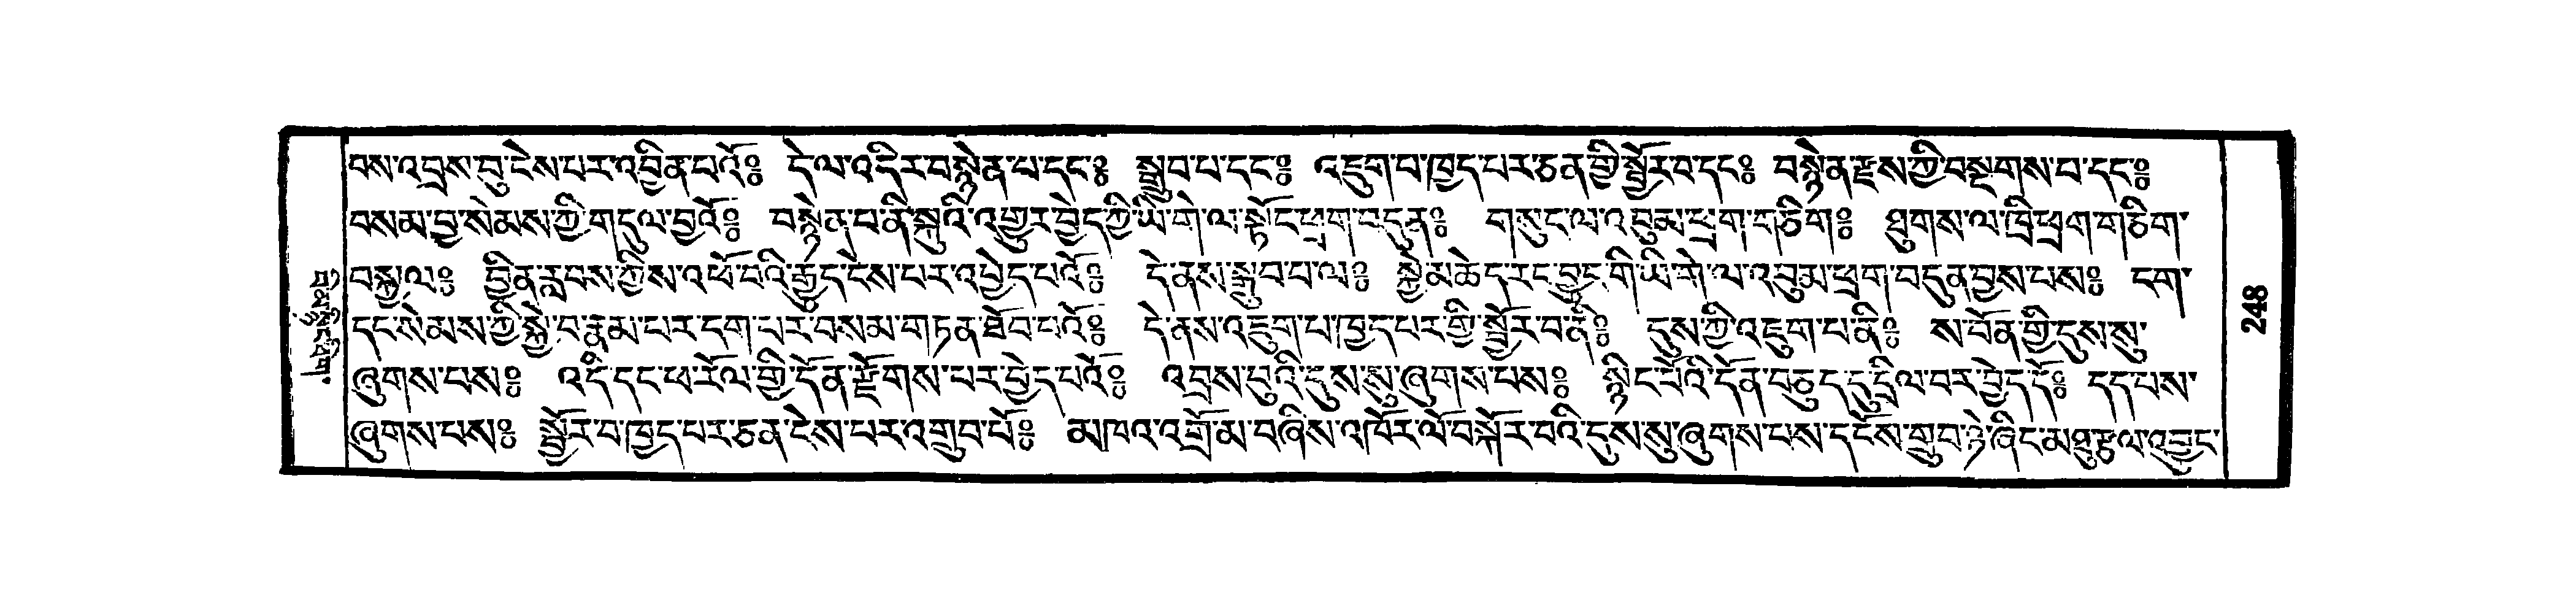 བས་འབྲས་བུ་ངེས་པར་འབྱིན་པའོ༔ དེ་ལ་འདིར་བསྙེན་པ་དང༔ སྒྲུབ་པ་དང༔ འཇུག་པ་ཁྱད་པར་ཅན་གྱི་སྦྱོར་བ་དང༔ བསྙེན་རྫས་ཀྱི་བསྔགས་པ་དང༔
བསམ་བྱ་སེམས་ཀྱི་གདུལ་བྱའོ༔ བསྙེན་པ་ནི་སྐུའི་འགྱུར་བྱེད་ཀྱི་ཡི་གེ་ལ་སྟོང་ཕྲག་བདུན༔ གསུང་ལ་འབུམ་ཕྲག་གཅིག༔ ཐུགས་ལ་ཁྲི་ཕྲག་གཅིག་
བསྐྱལ༔ བྱིན་རླབས་ཀྱིས་འཕོ་བའི་རྒྱུད་ངེས་པར་འབྱེད་པའོ༔ དེ་ནས་སྒྲུབ་པ་ལ༔ སྐྱེ་མཆེད་རང་བྱུང་གི་ཡི་གེ་ལ་འབུམ་ཕྲག་བདུན་བྱས་པས༔ ངག་
དང་སེམས་ཀྱི་སྐྱེ་བ་རྣམ་པར་དག་པར་བསམ་གཏན་ཐོབ་པའོ༔ དེ་ནས་འཇུག་པ་ཁྱད་པར་གྱི་སྦྱོར་བ་ནི༔ དུས་ཀྱི་འཇུག་པ་ནི༔ ས་བོན་གྱི་དུས་སུ་
ཞུགས་པས༔ འདི་དང་ཕ་རོལ་གྱི་དོན་རྫོགས་པར་བྱེད་པའོ༔ འབྲས་བུའི་དུས་སུ་ཞུགས་པས༔ སྙིང་པོའི་དོན་བཅུད་དུ་དྲིལ་བར་བྱེད་དོ༔ དད་པས་
ཞུགས་པས༔ སྦྱོར་བ་ཁྱད་པར་ཅན་ངེས་པར་འགྲུབ་པོ༔ མཁའ་འགྲོ་མ་བཞིས་འཁོར་ལོ་བསྐོར་བའི་དུས་སུ་ཞུགས་པས་དངོས་གྲུབ་ཉེ་ཞིང་མཐུ་རྩལ་འབྱུང་
248